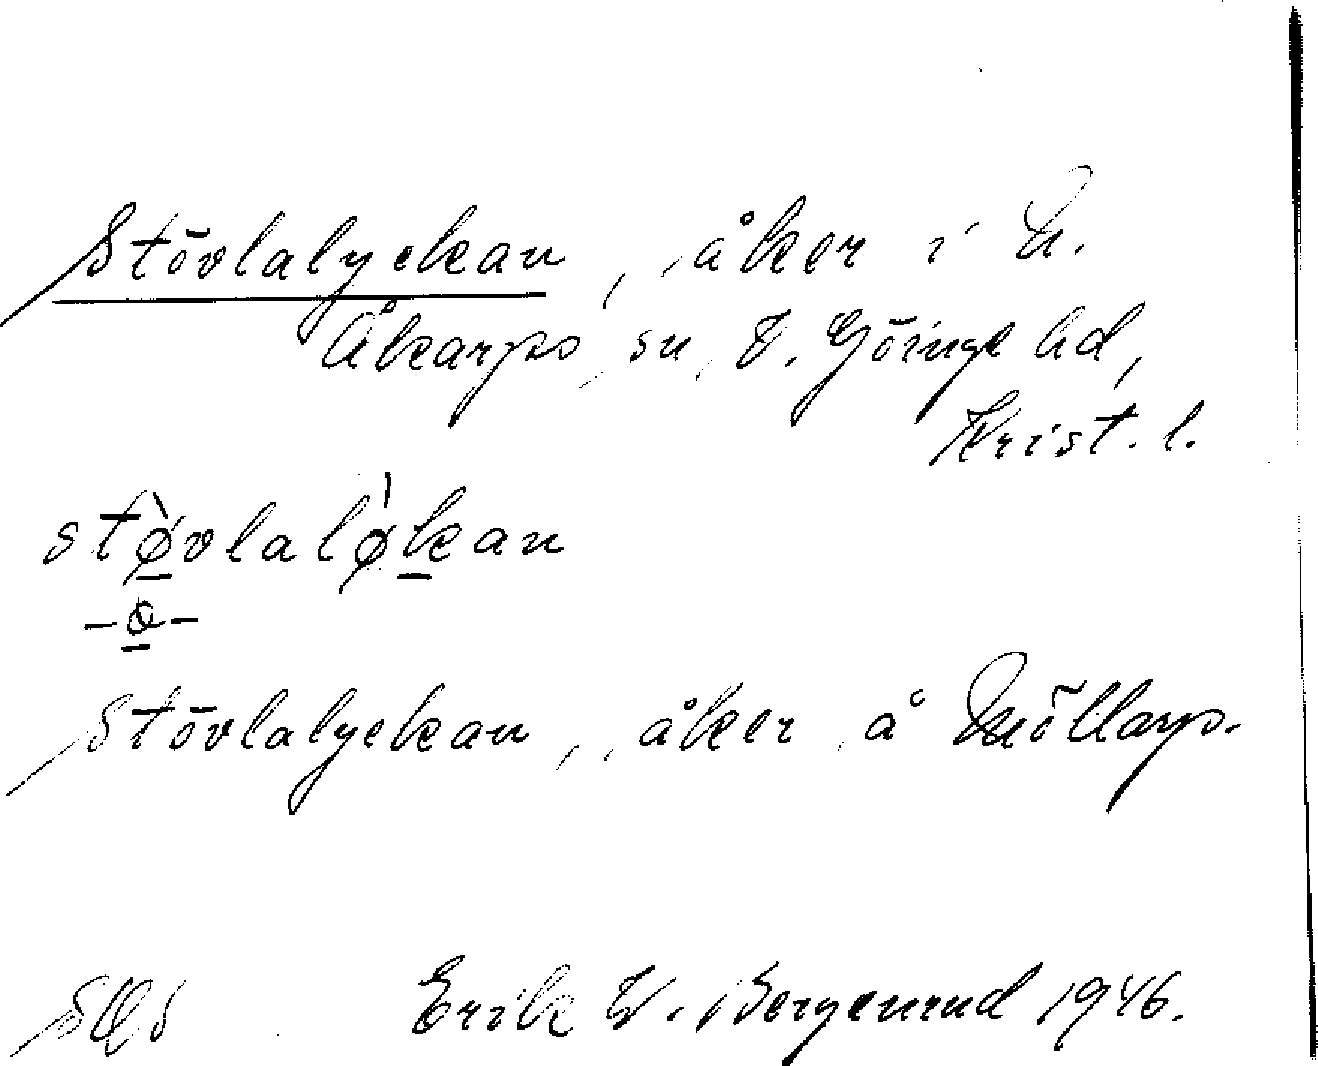 Stövlalyckan, åker i N.
Åkarps sn, V. Göinge hd,
Krist. l.
stø̀vlaløkan
-ø-
Stövlalyckan, åker å Möllarp.
Erik W. Bergenrud 1946.